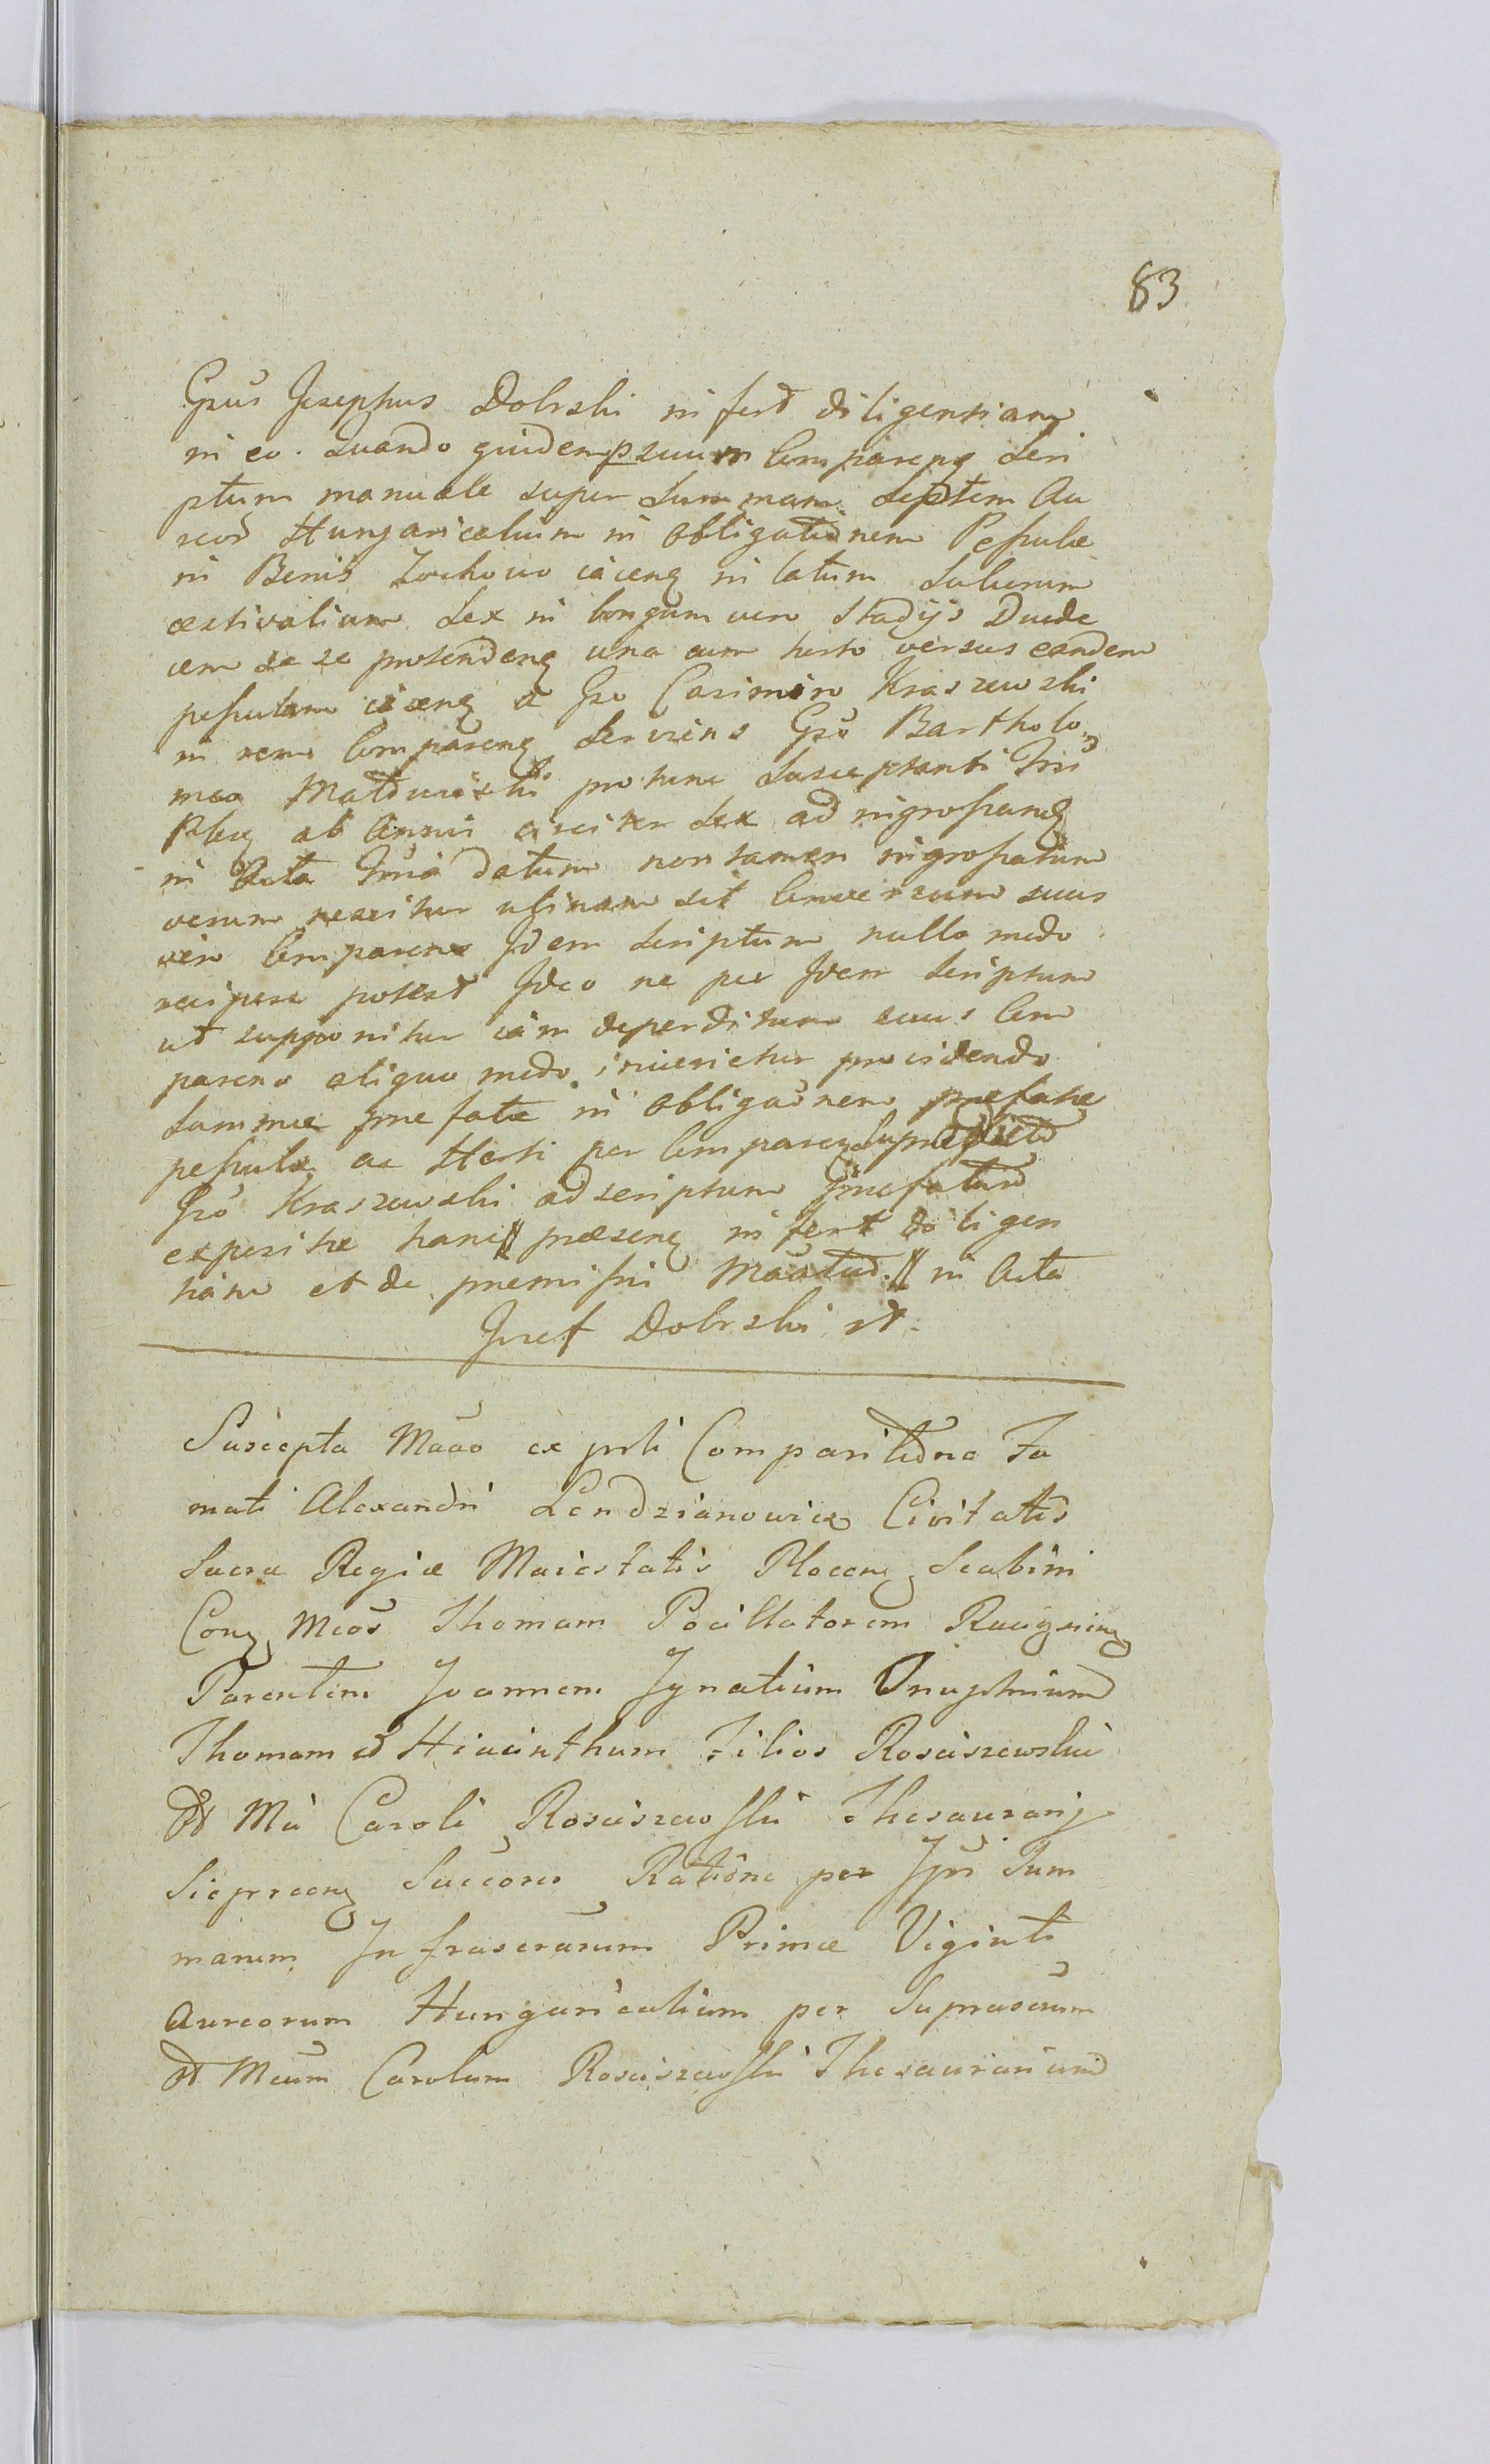 83
Gsus Josephus Dobrski infert diligentiam
in eo. Quando quidem suum Comparens Scri
ptum manuale super Summam Septem Au
reor Hungaricalium in obligationem Pessulæ
in Bonis Zochowo iacens in latum Sulcorum
æstivalium Sex in longum vero Stadijs Duode
cem se se protendens una cum horto versus eandem
pessulam iacens a Gso Casimiro Kraszewski
in rem Comparens serviens Gso Bartholo
meo protunc Susceptanti
ab Annis circiter Sex ad ingrossand
in Acta datum non tamen ingrossatum
verum nescitur ubinam sit Conversum suus
vero Comparens Idem Scriptum nullo modo
recipere potest Ideo ne per Idem Scriptum
ut supponitur iam deperditum suus Com
parens aliquo modo iniurietur providendo
Summæ præfatæ in obligaonem præfatæ
pessulæ ac Horti per Comparen
Gso Kraszewski ad scriptum præfatum
expositæ hanc præsens infert diligen
tiam et de præmissis in Acta
Jozef Dobrski
Suscepta ex prli Comparitione Fa
mati Alexandri Lendzianowicz Civitatis
Sacræ Regiæ Maiestatis Plocens Scabini
Cons Mcos Thomam Pocillatorem Raciązens
Parentem Joannem Ignatium Onuphrium
Thomam et Hiacinthum Filios Rosciszewskie
et Mci Caroli Rosciszewski Thesaurarij
Sieprcens Succores Ratione per Ipsi Sum
marum Infrascrarum Primæ Viginti
Aureorum Hungaricalium per Suprascrum
et Mcum Carolum Rosciszewski Thesaurarium